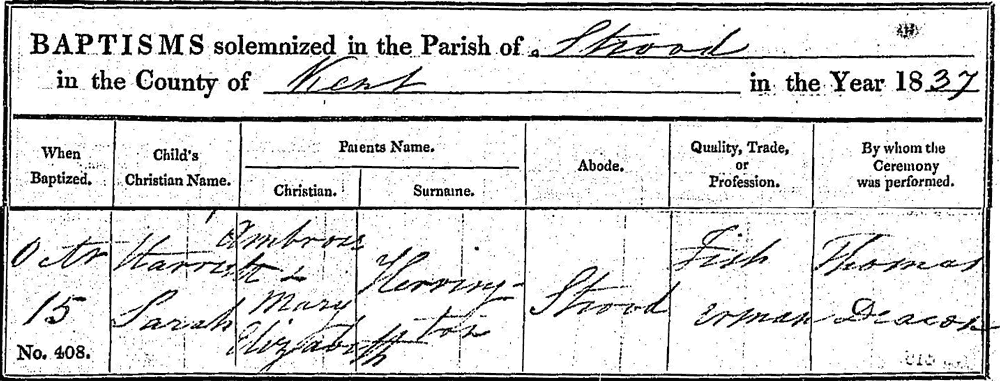 BAPTISMS solemnized in the Parish of Strood
in the County of Kent in the Year 1837
When Baptized.
Child's Christian Name.
Parents Name.
Christian.
Surname.
Abode.
Quality, Trade, or Profession.
By whom the Ceremony was performed.
Octr
15
No. 408.
Harriett
Sarah
Ambrose
&
Mary
Elizabeth
Herring-
ton
Strood
Fish
erman
Thomas
Deacon